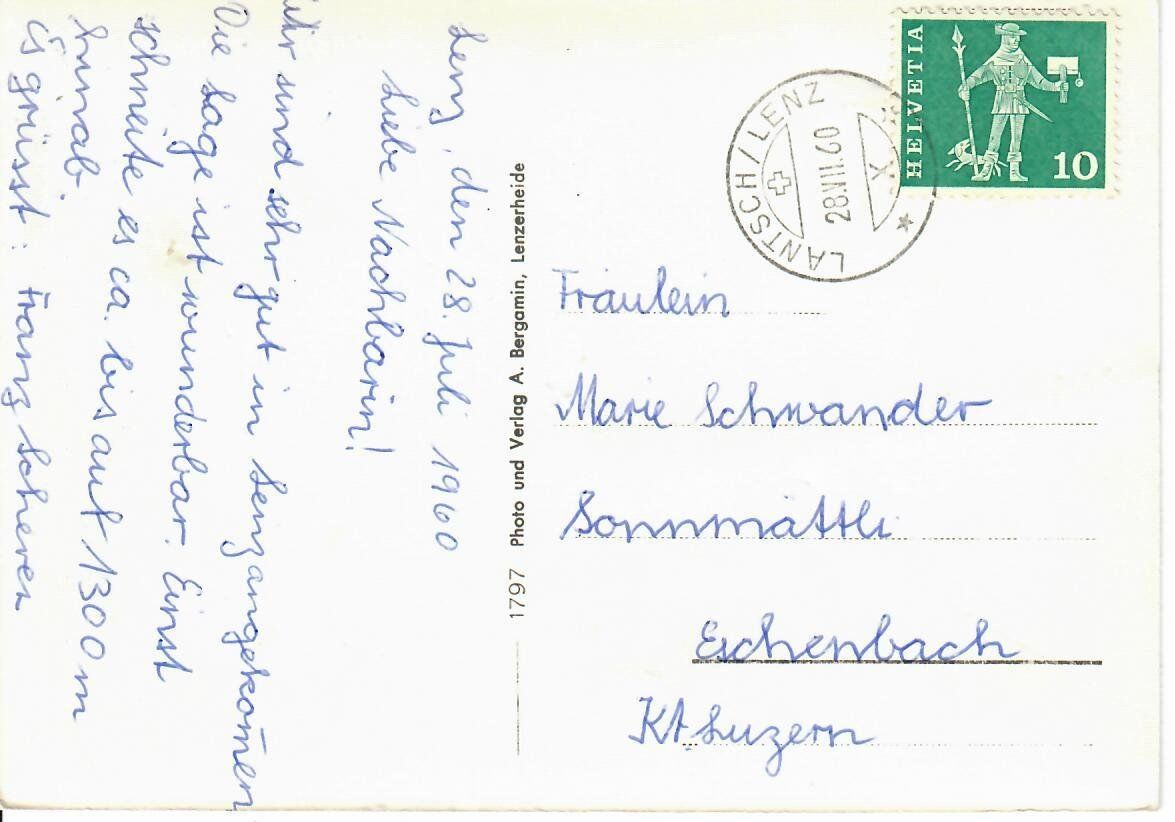 Lenz, den 28. Juli 1960
Liebe Nachbarin!
Wir sind sehr gut in Lenz angekom̄en
Die Lage ist wunderbar. Einst
schneite es ca. bis auf 1300 m
hinab.
Es grüsst: Franz Scherer
1797 Photo und Verlag A. Bergamin, Lenzerheide
HELVETIA
10
LANTSCH/LENZ
28.VII.60
X
Fräulein
Marie Schwander
Sonnmättli
Eschenbach
Kt. Luzern